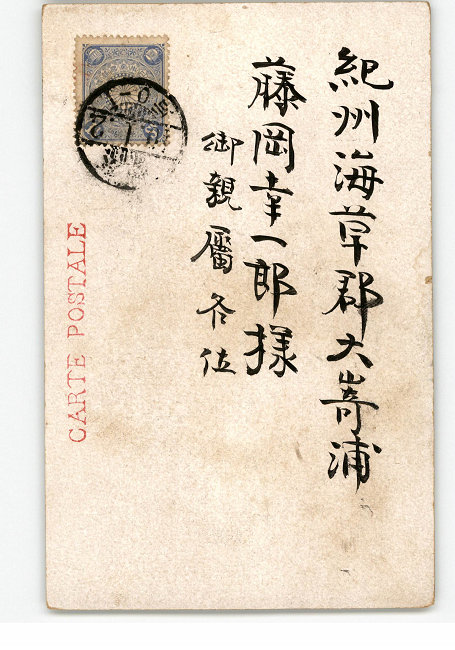 紀州海草郡大嵜浦
藤岡幸一郎様
御親屬各位
CARTE POSTALE